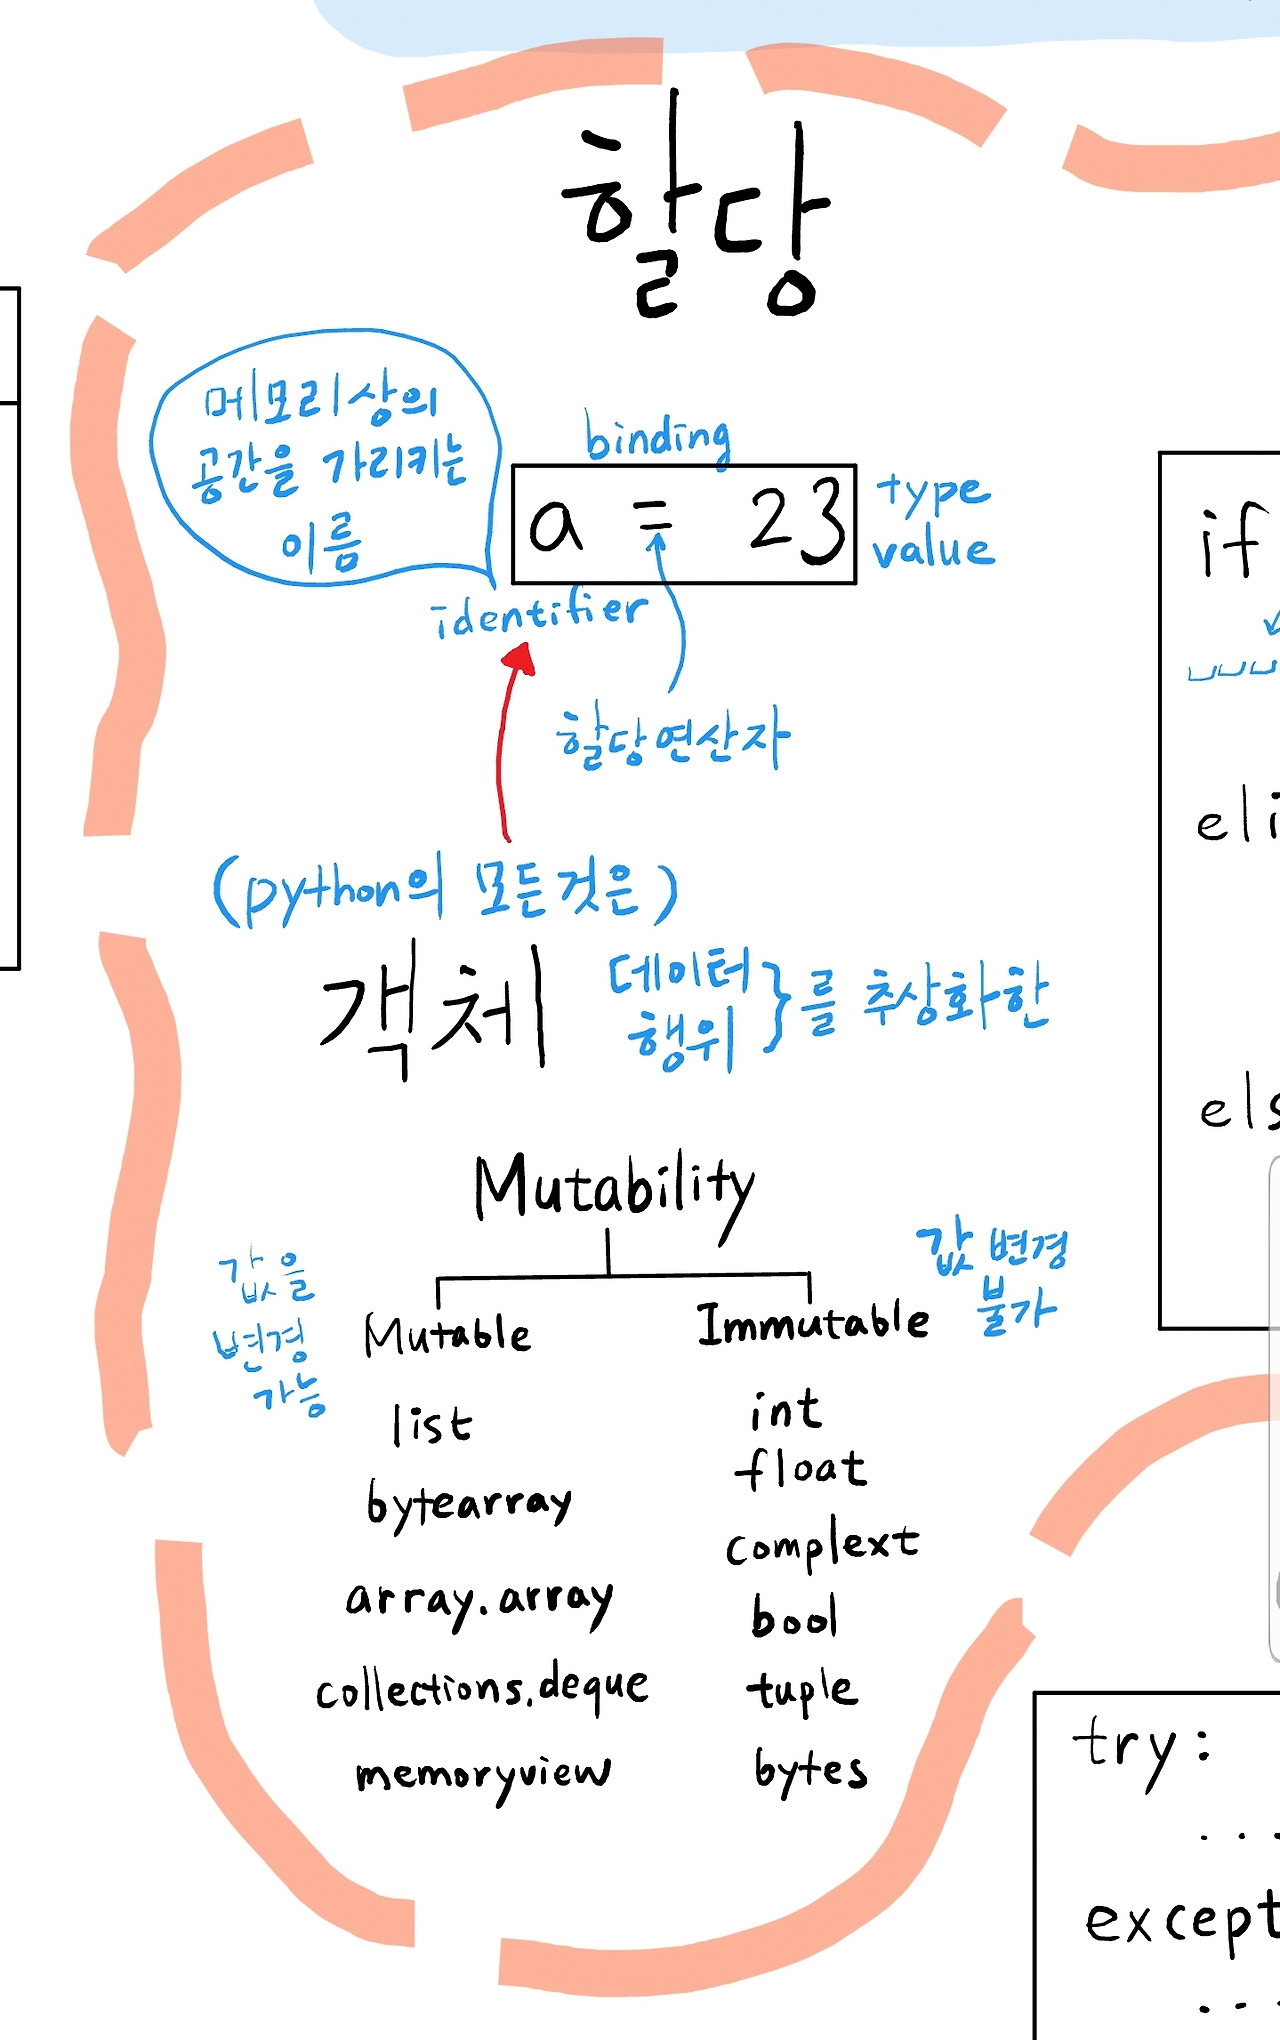 할당
메모리상의
공간을 가리키는
이름
binding
a = 23
type
value
identifier
할당연산자
(python의 모든것은)
객체
데이터
행위
} 를 추상화한
Mutability
값을
변경
가능
Mutable
Immutable
값 변경
불가
list
bytearray
array.array
collections.deque
memoryview
int
float
complext
bool
tuple
bytes
if
eli
els
try:
...
except
...